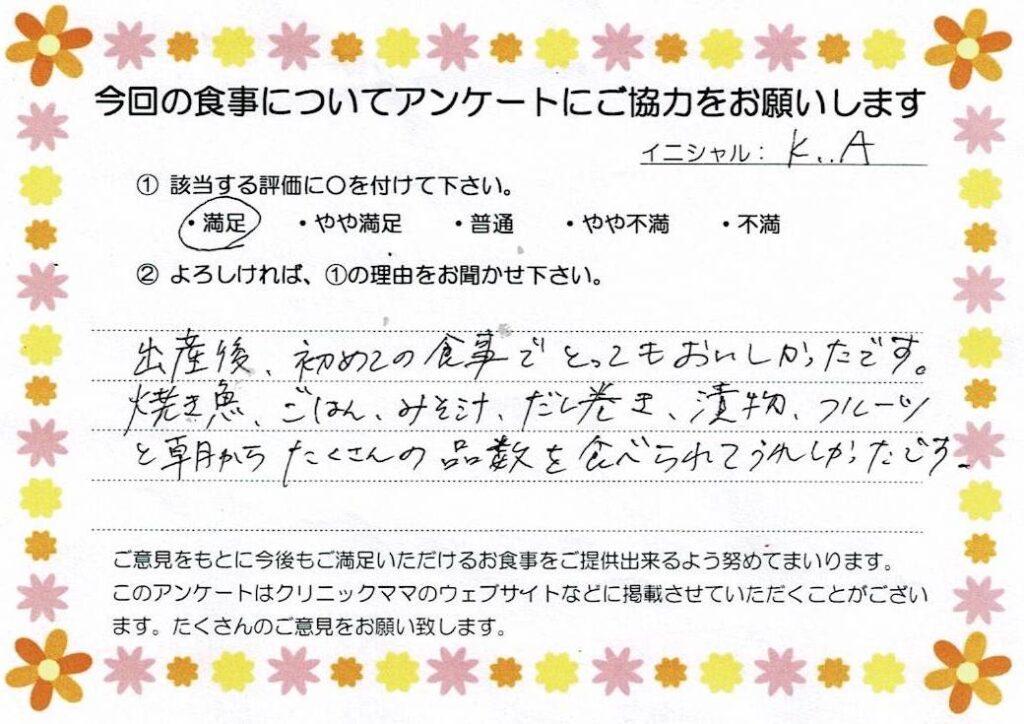 今回の食事についてアンケートにご協力をお願いします
イニシャル： K..A
① 該当する評価に〇を付けて下さい。
・満足 ・やや満足 ・普通 ・やや不満 ・不満
② よろしければ、①の理由をお聞かせ下さい。
出産後、初めての食事でとってもおいしかったです。
焼き魚、ごはん、みそ汁、だし巻き、漬物、フルーツ
と朝からたくさんの品数を食べられてうれしかったです。
ご意見をもとに今後もご満足いただけるお食事をご提供出来るよう努めてまいります。
このアンケートはクリニックママのウェブサイトなどに掲載させていただくことがござい
ます。たくさんのご意見をお願い致します。